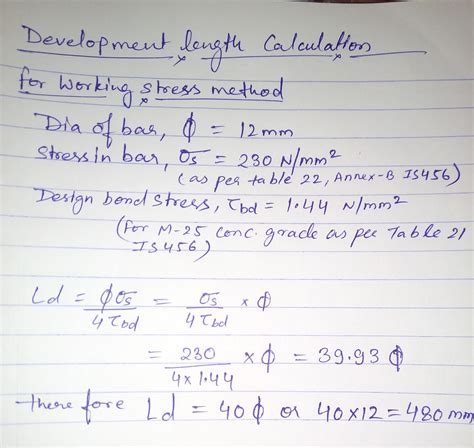 Development length Calculation
for Working stress method
Dia of bar, ϕ = 12mm
Stress in bar, σs = 230 N/mm²
(as per table 22, Annex-B IS456)
Design bond stress, τbd = 1.44 N/mm²
(for M-25 conc. grade as per Table 21
IS456)
Ld = ϕσs / 4τbd = σs / 4τbd × ϕ
= 230 / 4×1.44 × ϕ = 39.93 ϕ
There fore Ld = 40ϕ or 40×12 = 480 mm